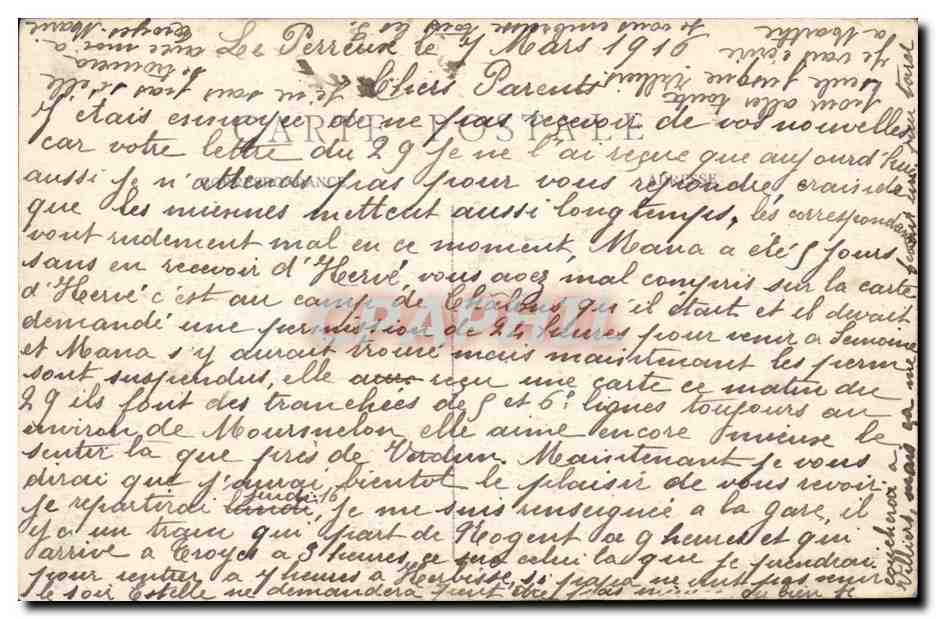 Le Perreux le 7 Mars 1916
Chers Parents
J'étais ennuyée de ne pas recevoir de vos nouvelles
CARTE POSTALE
car votre lettre du 29 je ne l'ai reçue que aujourd'hui
CORRESPONDANCE
ADRESSE
aussi je n'attends pas pour vous repondre crainte
que les miennes mettent aussi longtemps, les correspondances
vont rudement mal en ce moment, Mana a été 5 jours
sans en recevoir d'Hervé vous avez mal compris sur la carte
d'Hervé c'est au camp de Châlons qu'il était et il devait
demandé une permission de 24 heures pour venir a Semoine
et Mana s'y aurait trouvé mais maintenant les perm
sont suspendus, elle a reçu une carte ce matin du
29 ils font des tranchées de 5 et 6e lignes toujours au
environ de Mourmelon elle aime encore mieux le
sentir là que près de Verdun. Maintenant je vous
dirai que j'aurai bientot le plaisir de vous revoir
je repartirai lundi jeudi 16, je me suis renseignée a la gare, il
y a un train qui part de Nogent a 9 heures et qui
arrive a Troyes a 3 heures, ce sera celui la que je prendrai
pour rentrer a 7 heures a Herbisse, si papa ne peut pas venir
le soir Estelle ne demandera peut être pas mieux ou bien je
coucherai a
Villiers, mais ça me
pour aller toute
seule jusque Villiers
je ne sais pas si elle
se trouvera
avec moi a
Troyes. Marie
Je vais écrire
a Marthe
je vous embrasse tous les